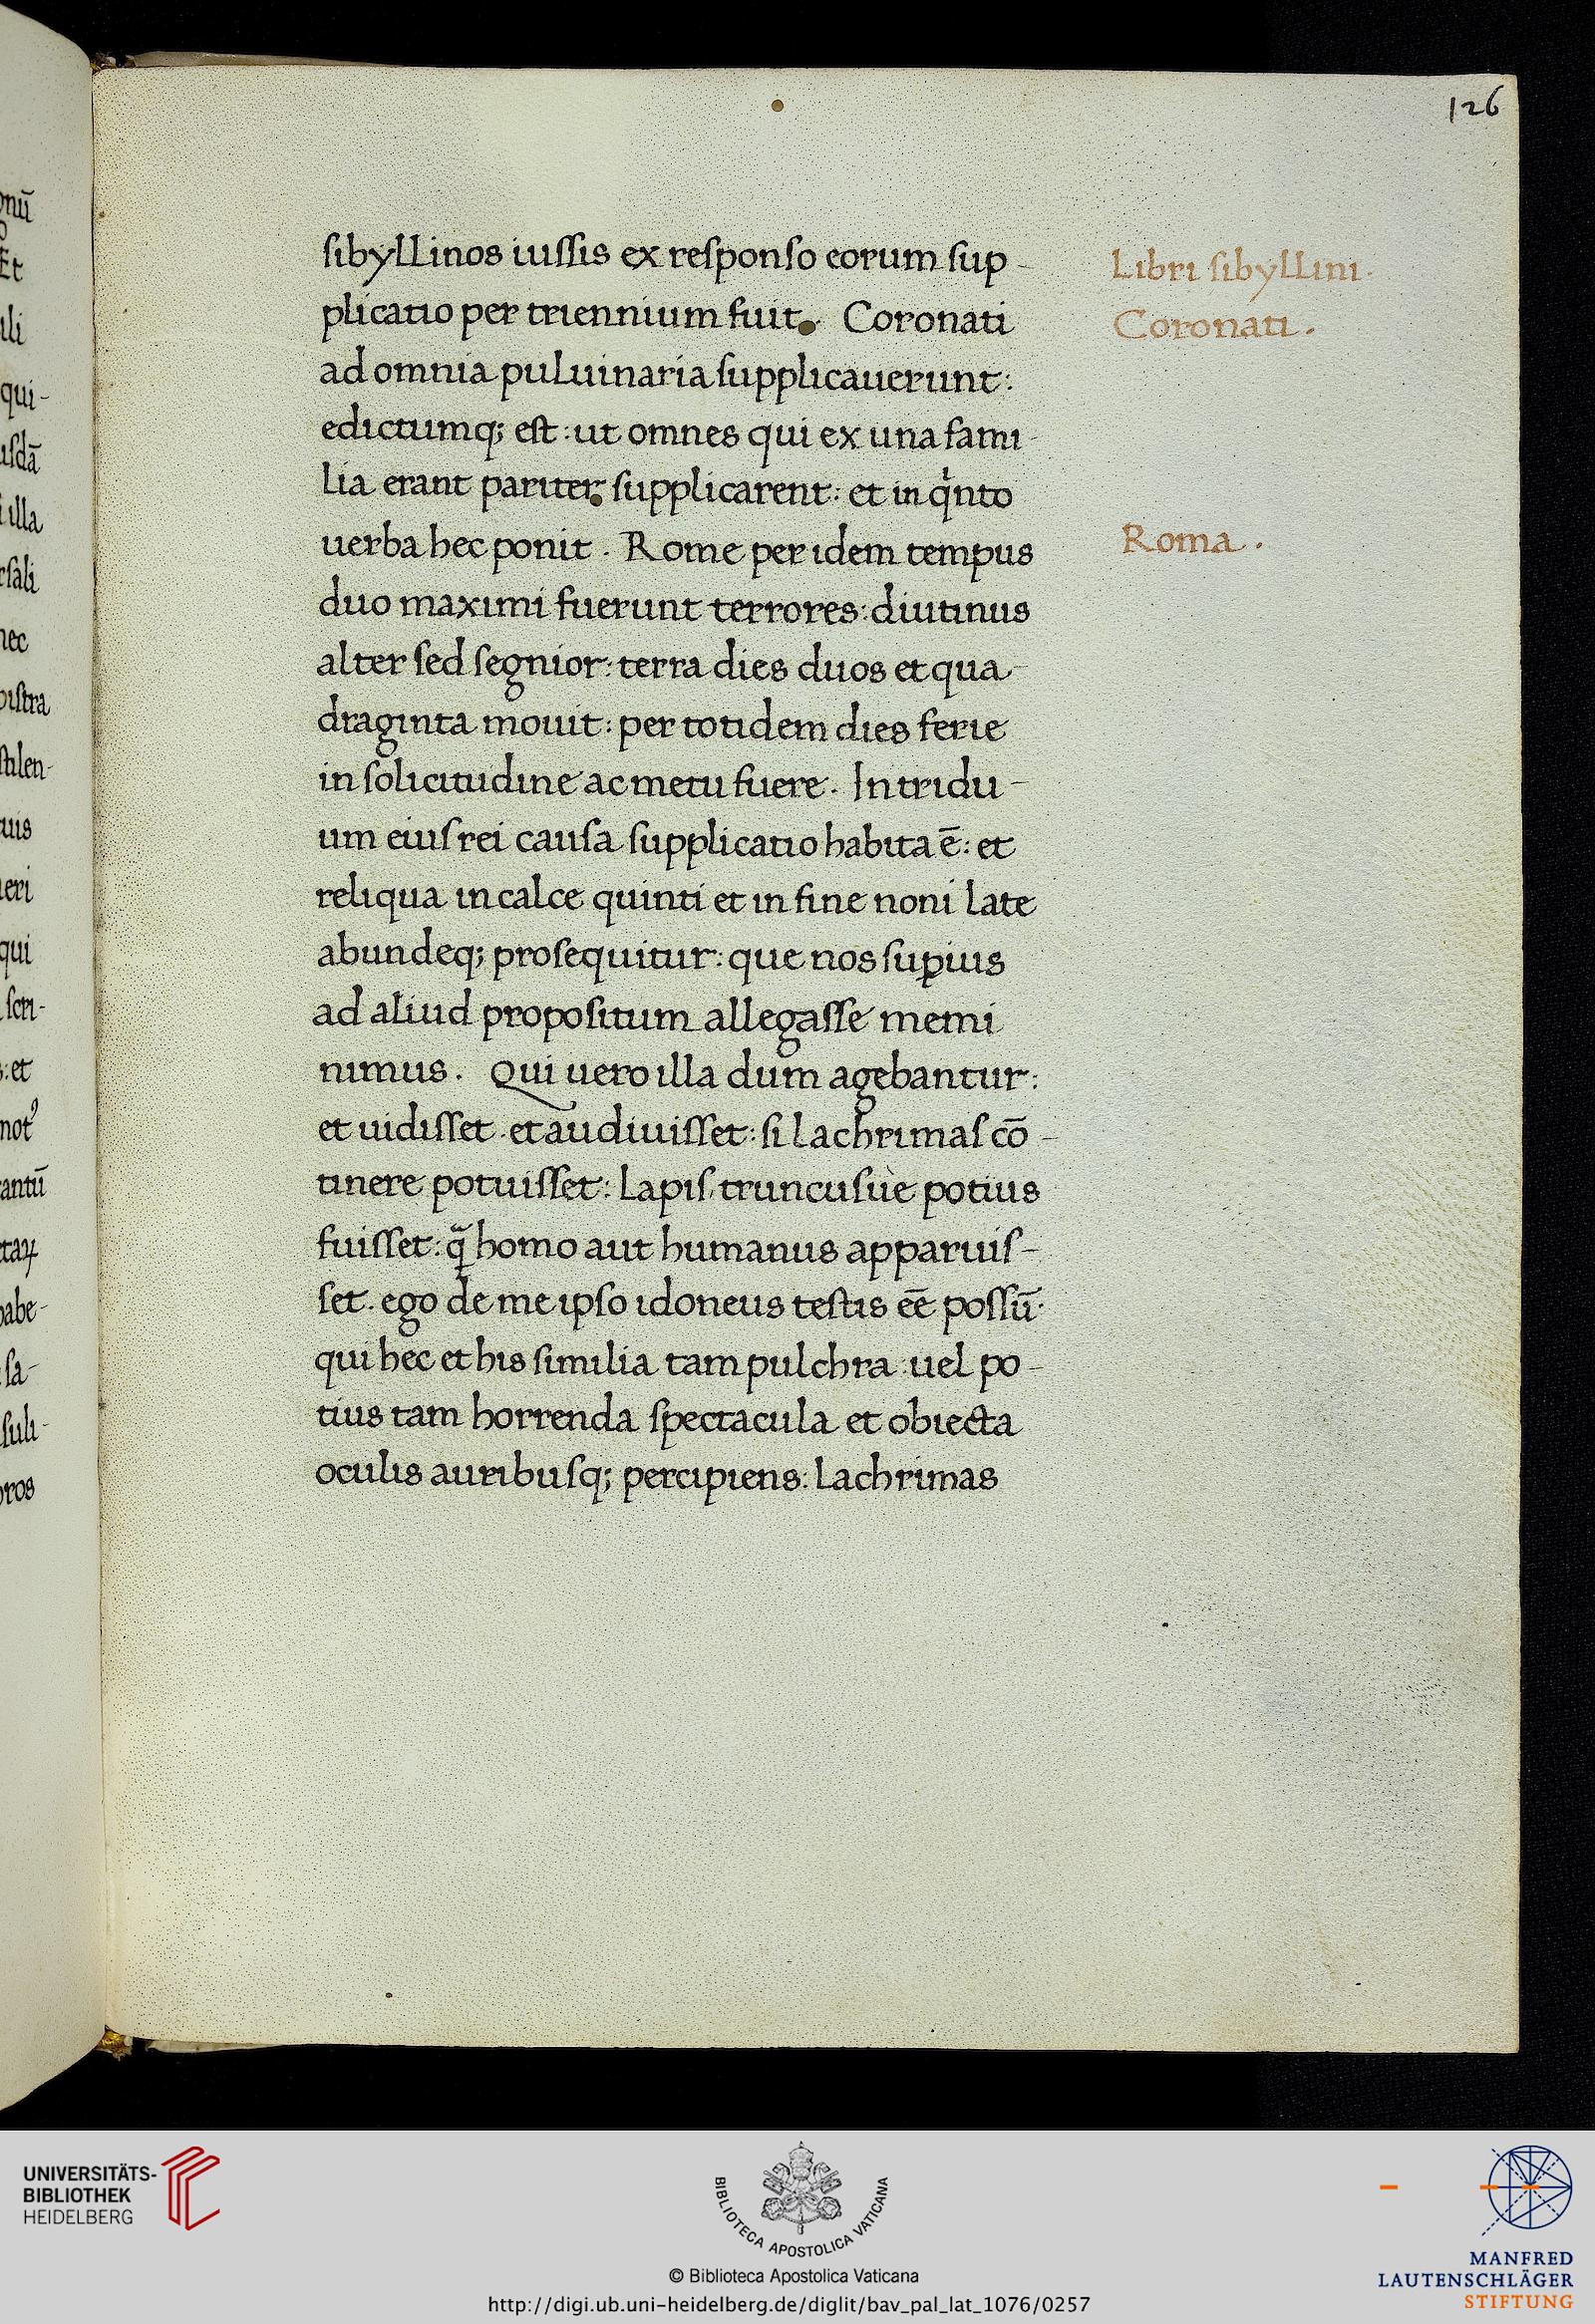 126
sibyllinos iussis ex responso eorum sup-
plicatio per triennium fuit. Coronati
ad omnia puluinaria supplicauerunt:
edictumq; est: ut omnes qui ex una fami-
lia erant pariter supplicarent: et in qͥnto
uerba hec ponit. Rome per idem tempus
duo maximi fuerunt terrores: diutinus
alter sed segnior: terra dies duos et qua-
draginta mouit: per totidem dies ferie
in solicitudine ac metu fuere. In tridu-
um eius rei causa supplicatio habita ē: et
reliqua in calce quinti et in fine noni late
abundeq; prosequitur: que nos suꝑius
ad aliud propositum allegasse memi
nimus. Qui uero illa dum agebantur:
et uidisset. et audiuisset: si lachrimas cō-
tinere potuisset: lapis, truncusue potius
fuisset: q̃ homo aut humanus apparuis-
set. ego de me ipso idoneus testis eē possū.
qui hec et his similia tam pulchra: uel po-
tius tam horrenda spectacula et obiecta
oculis auribusq; percipiens: lachrimas
Libri sibyllini.
Coronati.
Roma.
onū
Et
ili
qui-
usdā
illa
rsali
nec
ostra
stilen-
tuis
ueri
qui
scri-
s: et
antū
habe-
sa-
suli-
bros
UNIVERSITÄTS-
BIBLIOTHEK
HEIDELBERG
BIBLIOTECA APOSTOLICA VATICANA
© Biblioteca Apostolica Vaticana
http://digi.ub.uni-heidelberg.de/diglit/bav_pal_lat_1076/0257
MANFRED
LAUTENSCHLÄGER
STIFTUNG